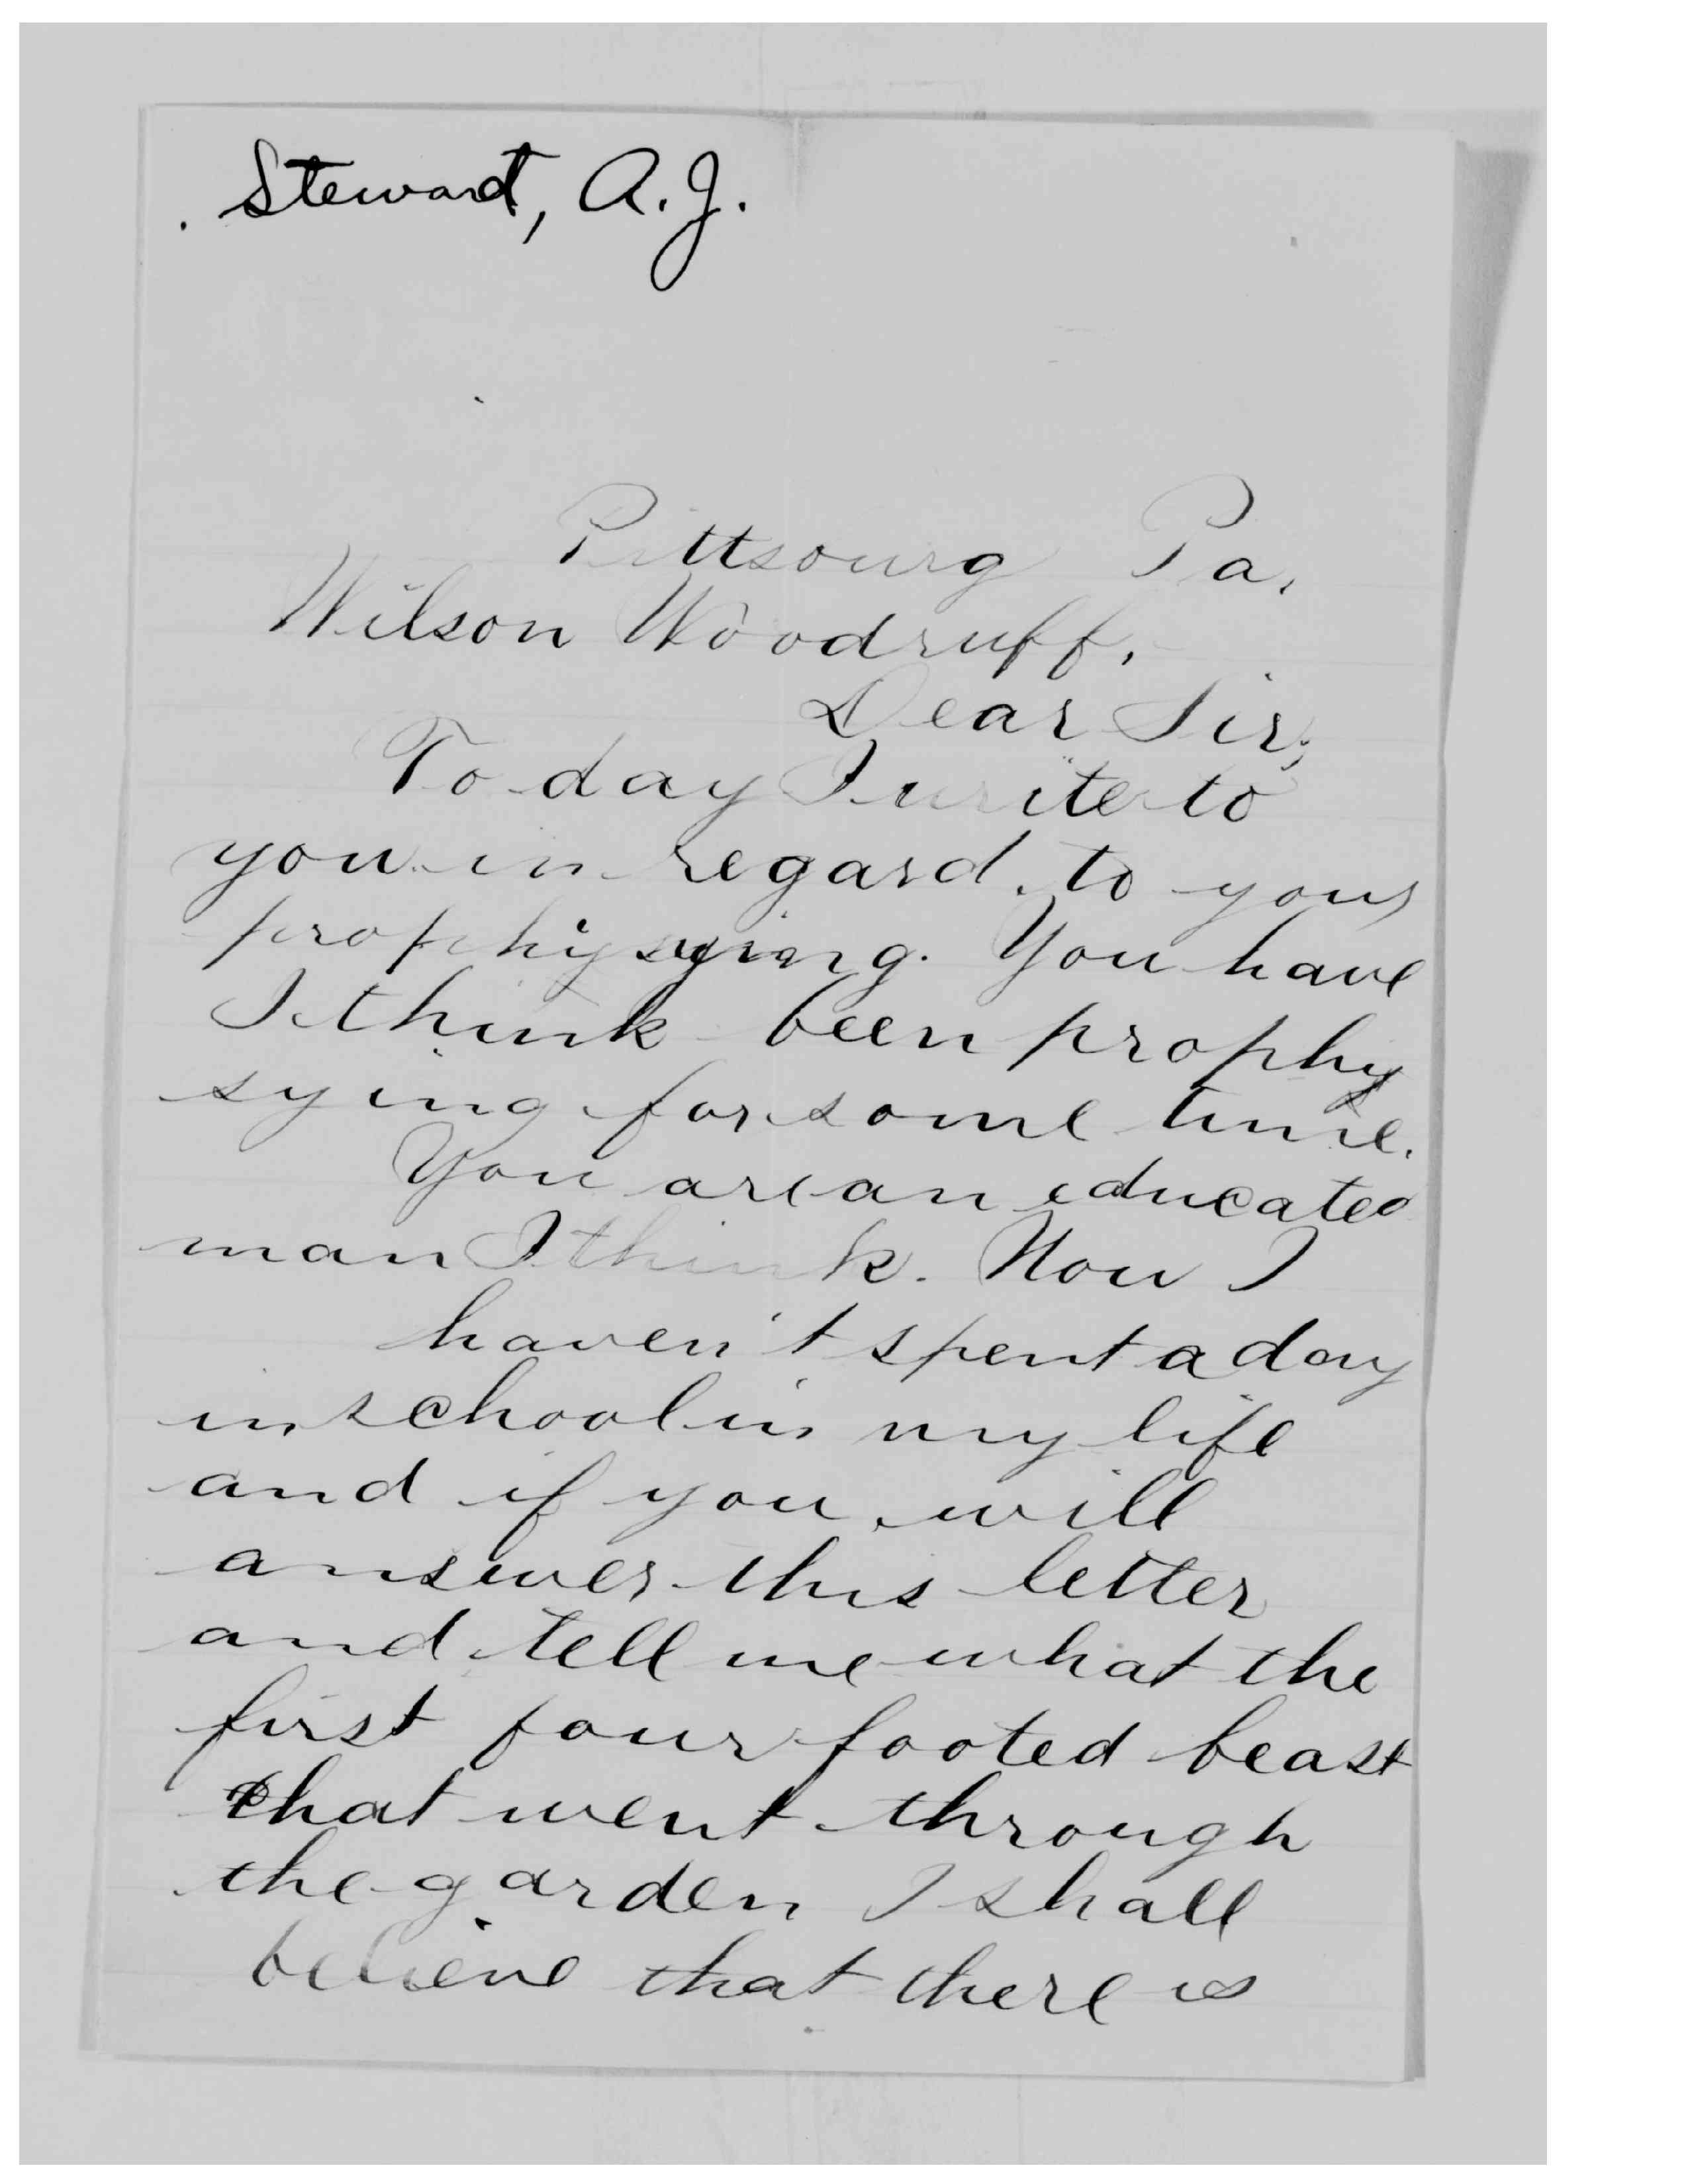 Steward, A.J.
Pittsburg Pa,
Wilson Woodruff,
Dear Sir;
To day I write to
you in regard to your
prophysying. You have
I think been prophy
sying for some time.
You are an educated
man I think. Now I
haven't spent a day
in school in my life
and if you will
answer this letter
and tell me what the
first four footed beast
that went through
the garden I shall
believe that there is